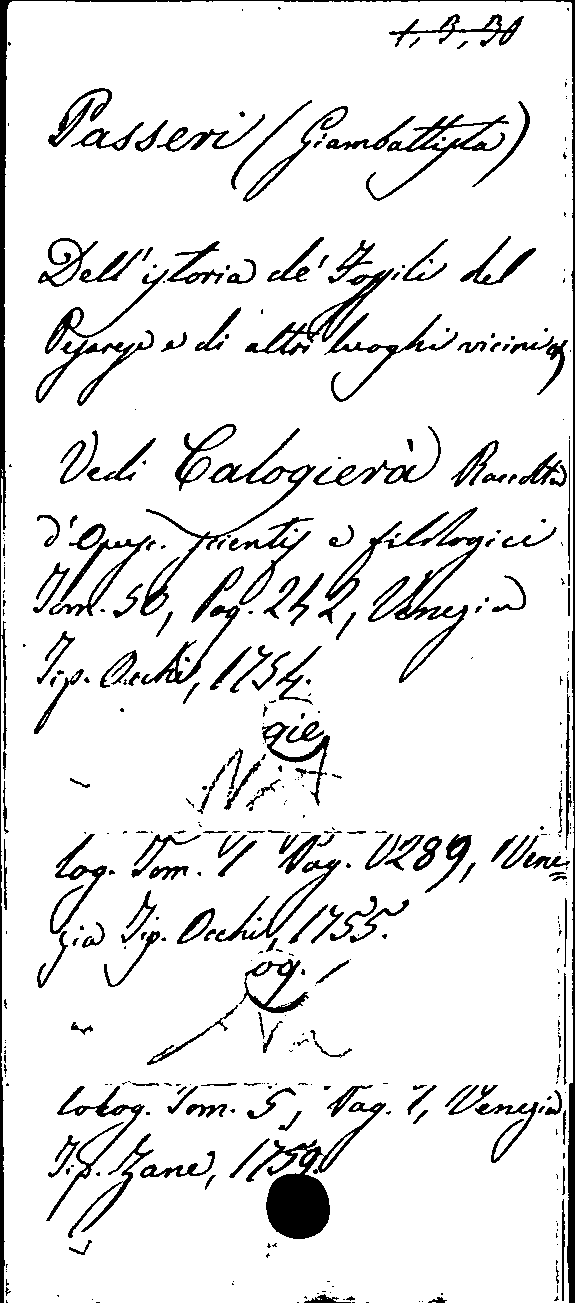 1, B, 30
Passeri (Giambattista)
Dell'istoria de' Fossili del
Pesarese e di altri luoghi vicini
Vedi Calogierà Raccolta
d'Opusc. scientif e filologici
Tom. 50, Pag. 242, Venezia
Tip. Occhi, 1754.
gie
log. Tom. 1 Pag. 289, Vene=
zia Tip. Occhi, 1755.
og.
lolog. Tom. 5, Pag. 1, Venezia
Tip. Zane, 1759.